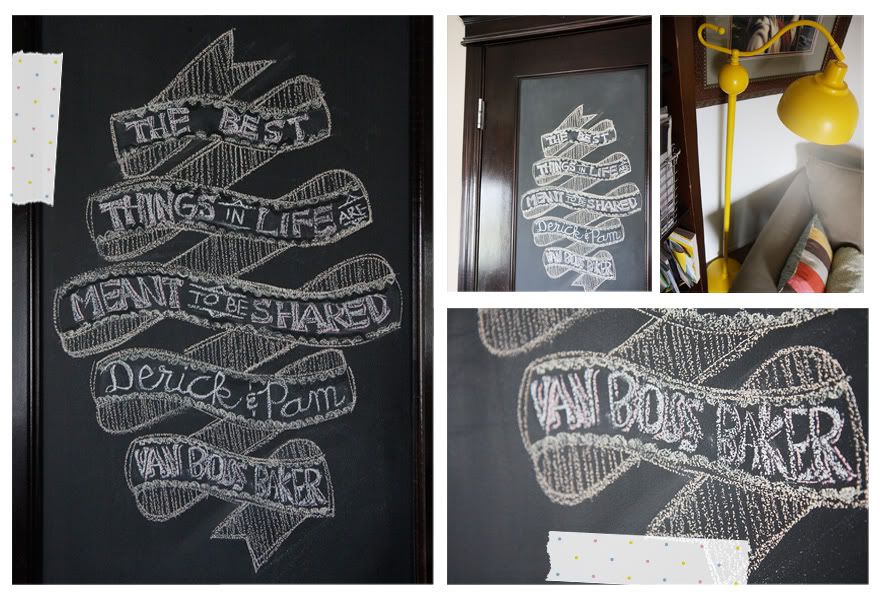 THE BEST
THINGS IN LIFE ARE
MEANT TO BE SHARED
Derick & Pam
VAN BOSS BAKER
THE BEST
THINGS IN LIFE ARE
MEANT TO BE SHARED
Derick & Pam
VAN BOSS BAKER
VAN BOSS BAKER